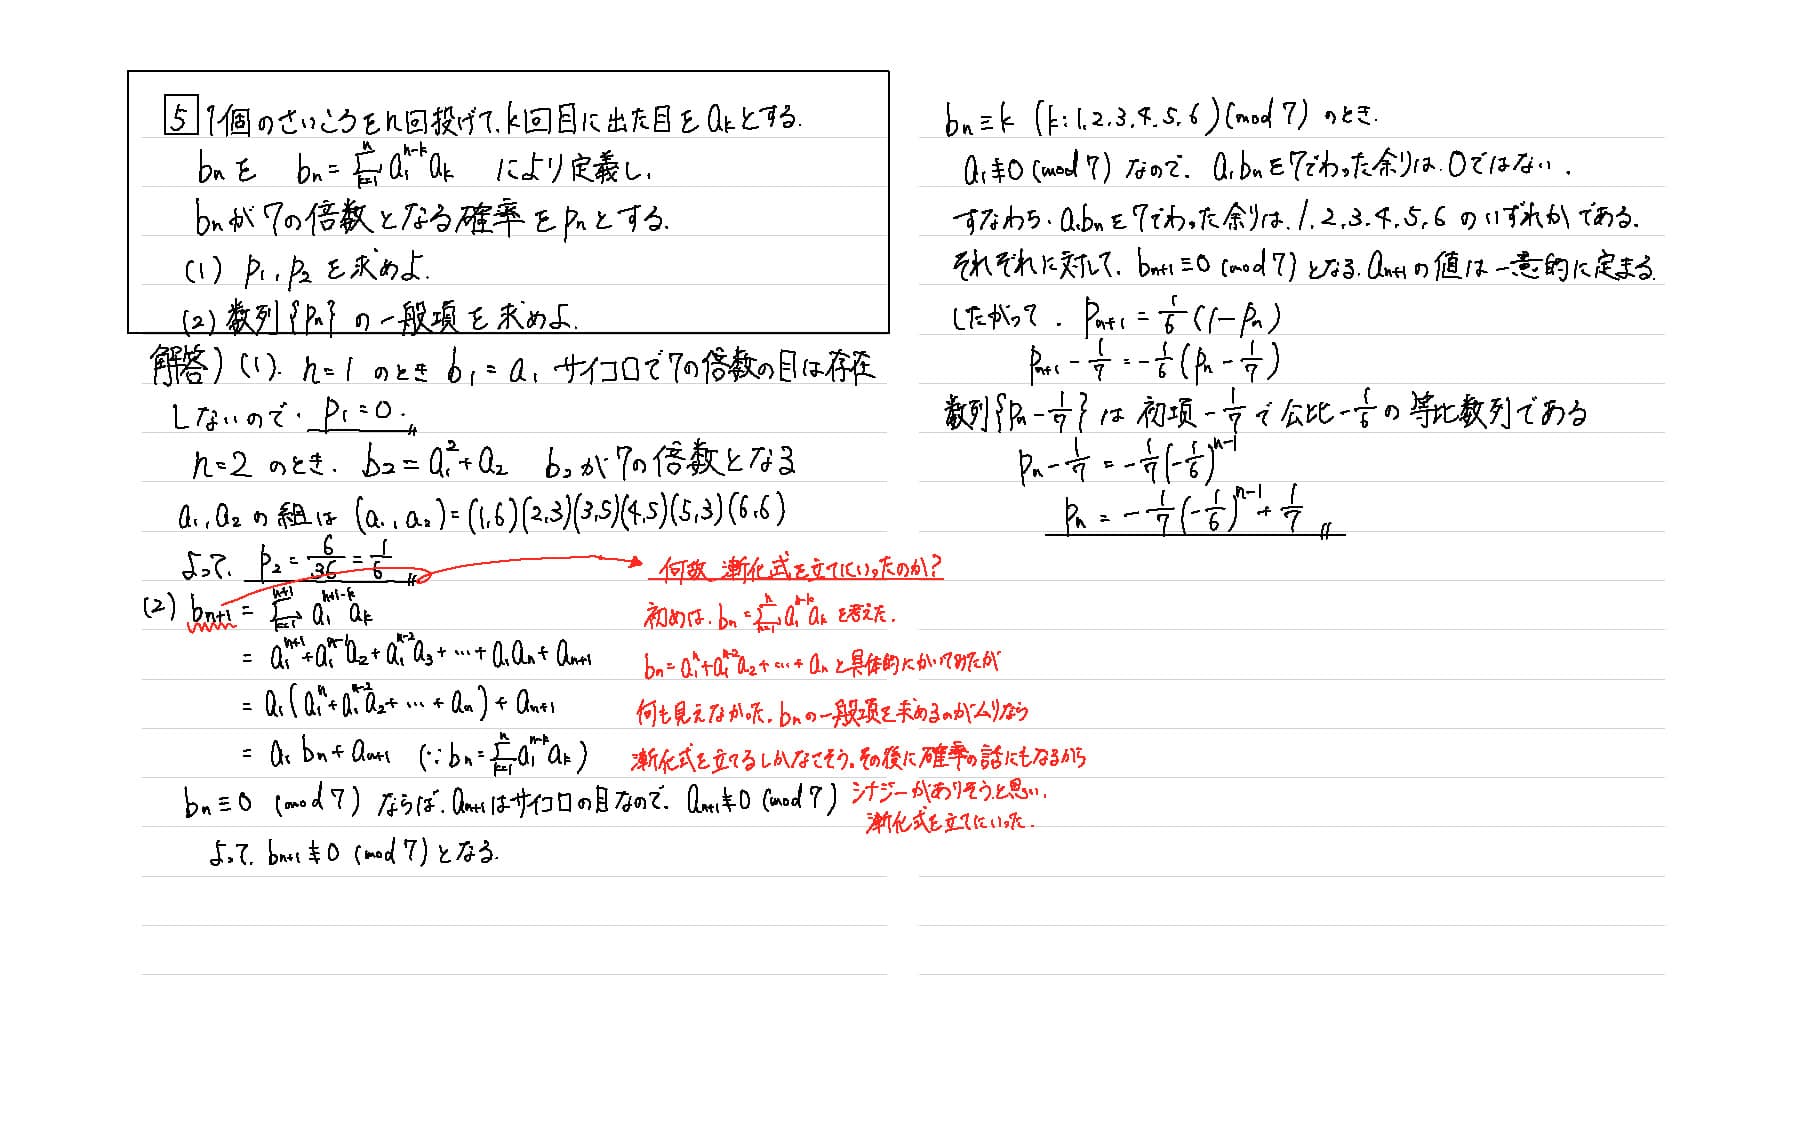 5 1個のさいころをn回投げて、k回目に出た目をa_kとする.
b_nを b_n=Σ_{k=1}^{n} a_1^{n-k} a_k により定義し、
b_nが7の倍数となる確率をp_nとする.
(1) p_1, p_2 を求めよ.
(2) 数列{p_n}の一般項を求めよ.
解答) (1). n=1 のとき b_1=a_1 サイコロで7の倍数の目は存在
しないので、p_1=0.
n=2 のとき、b_2=a_1^2+a_2 b_2が7の倍数となる
a_1, a_2 の組は (a_1, a_2)=(1,6)(2,3)(3,5)(4,5)(5,3)(6,6)
よって、p_2=6/36=1/6
(2) b_{n+1} = Σ_{k=1}^{n+1} a_1^{n+1-k} a_k
= a_1^{n+1}+a_1^{n-1}a_2+a_1^{n-2}a_3+…+a_1a_n+a_{n+1}
= a_1(a_1^n+a_1^{n-2}a_2+…+a_n)+a_{n+1}
= a_1 b_n+a_{n+1} (∵ b_n=Σ_{k=1}^{n} a_1^{n-k} a_k)
b_n≡0 (mod 7) ならば、a_{n+1}はサイコロの目なので、a_{n+1}≢0 (mod 7)
よって、b_{n+1}≢0 (mod 7)となる.
何故 漸化式を立てにいったのか?
初めは、b_n=Σ_{k=1}^{n} a_1^{n-k} a_k を考えた.
b_n=a_1^n+a_1^{n-2}a_2+…+a_n と具体的にかいてみたが
何も見えなかった. b_nの一般項を求めるのがムリなら
漸化式を立てるしかなさそう。その後に確率の話にもなるから
シナジーがありそうと思い、
漸化式を立てにいった.
b_n≡k (k:1,2,3,4,5,6)(mod 7) のとき.
a_1≢0 (mod 7) なので、a_1b_nを7でわった余りは0ではない.
すなわち、a_1b_nを7でわった余りは、1,2,3,4,5,6 のいずれかである.
それぞれに対して、b_{n+1}≡0 (mod 7) となる、a_{n+1}の値は一意的に定まる.
したがって、p_{n+1}=1/6(1-p_n)
p_{n+1}-1/7=-1/6(p_n-1/7)
数列{p_n-1/7}は 初項-1/7で公比-1/6の等比数列である
p_n-1/7=-1/7(-1/6)^{n-1}
p_n=-1/7(-1/6)^{n-1}+1/7